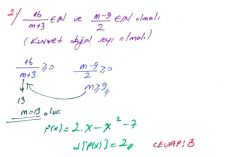 2) 16/m+3 ∈ N ve m-9/2 ∈ N olmalı
(Kuvvet doğal sayı olmalı)
16/m+3 ≥ 0 m-9/2 ≥ 0
m ≥ 9
13
m=13 olur.
P(x) = 2.x - x² - 7
d[P(x)] = 2
CEVAP: B